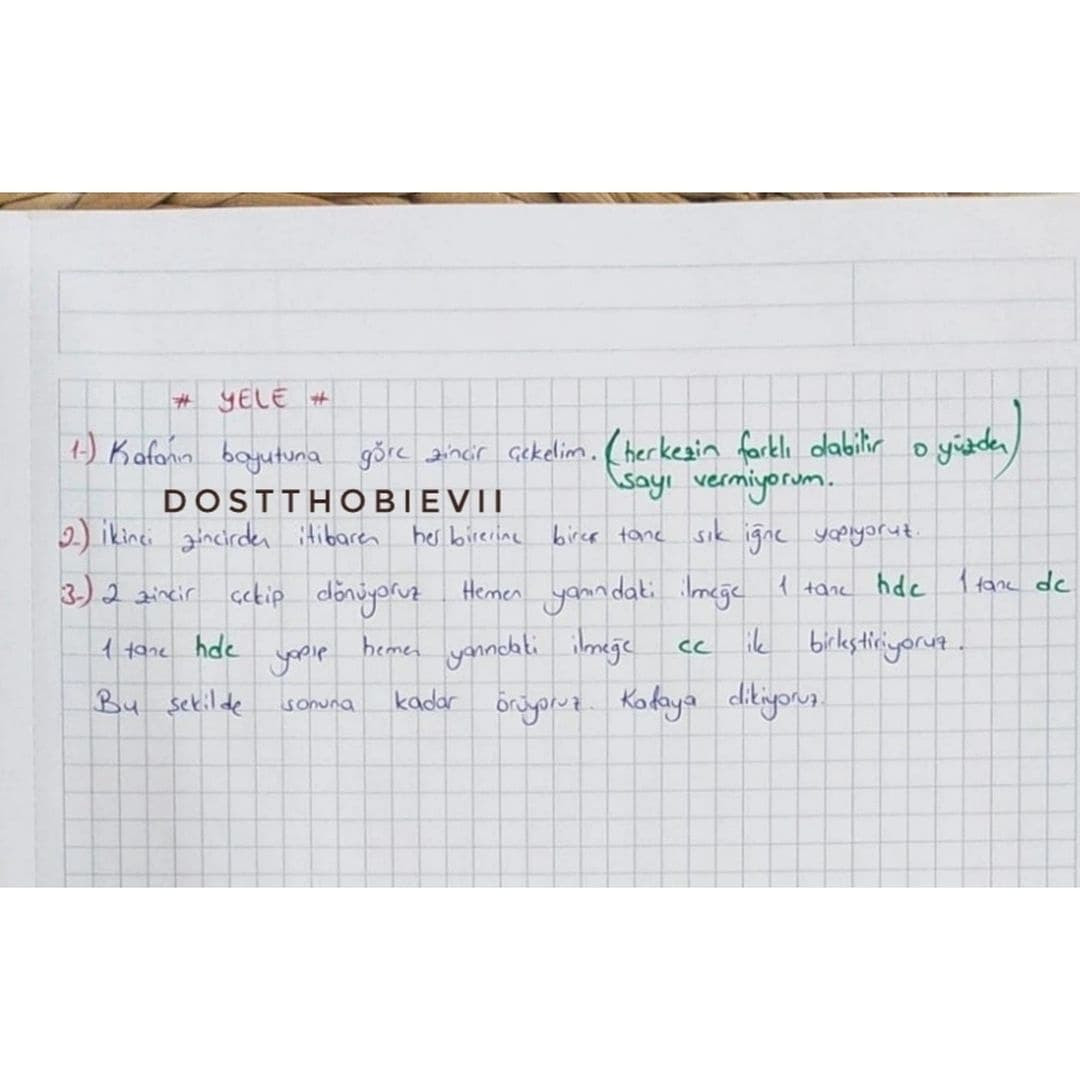 # YELE #
1-) Kafanın boyutuna göre zincir çekelim. (herkezin farklı olabilir o yüzden)
sayı vermiyorum.
DOSTTHOBIEVII
2-) İkinci zincirden itibaren her birerine birer tane sık iğne yapıyoruz.
3-) 2 zincir çekip dönüyoruz. Hemen yanındaki ilmeğe 1 tane hdc 1 tane dc
1 tane hdc yapıp hemen yanındaki ilmeğe cc ile birleştiriyoruz.
Bu şekilde sonuna kadar örüyoruz. Kafaya dikiyoruz.